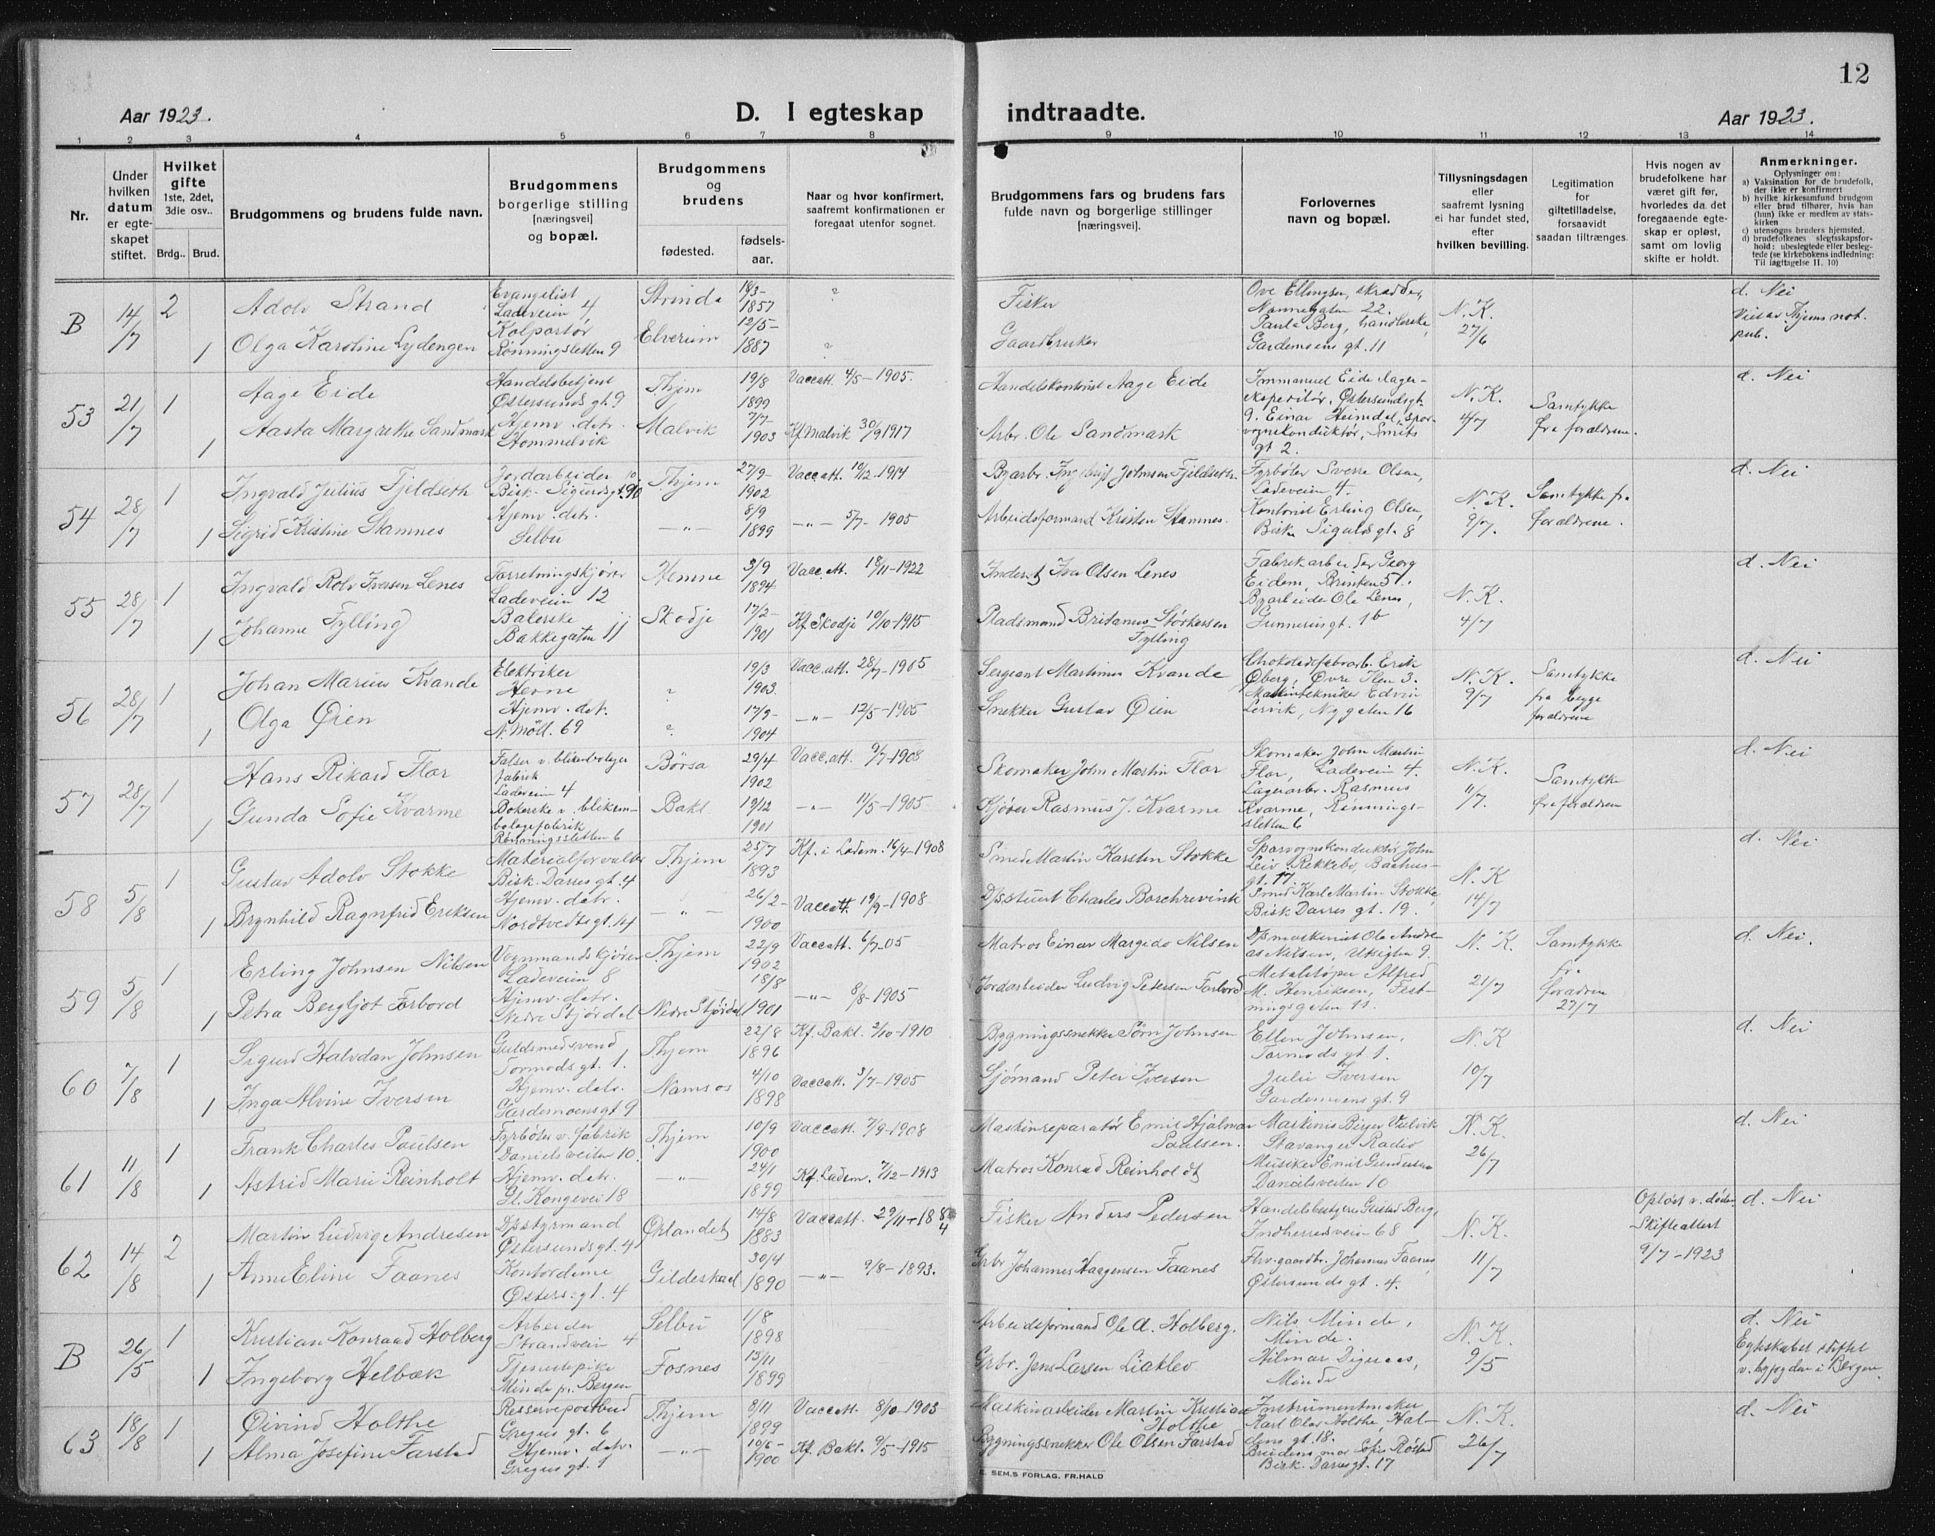 12
Aar 1923.
D. I egteskap indtraadte.
Aar 1923.
1 2 3 4 5 6 7 8 9 10 11 12 13 14
Nr.
Under hvilken datum er egteskapet stiftet.
Hvilket gifte 1ste, 2det, 3die osv..
Brdg.. Brud.
Brudgommens og brudens fulde navn.
Brudgommens borgerlige stilling [næringsvei] og bopæl.
Brudgommens og brudens
fødested. fødsels-aar.
Naar og hvor konfirmert, saafremt konfirmationen er foregaat utenfor sognet.
Brudgommens fars og brudens fars fulde navn og borgerlige stillinger [næringsvei].
Forlovernes navn og bopæl.
Tillysningsdagen eller saafremt lysning ei har fundet sted, efter hvilken bevilling.
Legitimation for giftetilladelse, forsaavidt saadan tiltrænges.
Hvis nogen av brudefolkene har været gift før, hvorledes da det foregaaende egteskap er opløst, samt om lovlig skifte er holdt.
Anmerkninger.
Oplysninger om:
a) Vaksination for de brudefolk, der ikke er konfirmert
b) hvilke kirkesamfund brudgom eller brud tilhører, hvis han (hun) ikke er medlem av statskirken
c) utensogns bruders hjemsted.
d) brudefolkenes slegtsskapsforhold: ubeslegtede eller beslegtede (se kirkebokens indledning: Til iagttagelse II. 10)
B 14/7 2 Adolv Strand Evangelist Ladeveien 4 Strinda 1857 ? Fisker Ove Ellingsen, skrædder, Nonnegaten 22. N. K. 27/6 d. Nei
1 Olga Karoline Lydengen Kolportør Rønningsletten 9 Elverum 12/5-1887 ? Gaardbruker Paula Berg, Gardemoens gt. 11 Viet av Thjems not. pub.
53 21/7 1 Aage Eide Handelsbetjent Østersunds gt. 9 Thjem 19/8 1899 Vaccatt. 4/5-1905. Aage Eide Immanuel Eide lagerekspeditør, Østersundsgt 9. N. K. 4/7 Samtykke fra forældrene. d. Nei
1 Aasta Margrethe Sandmark Hjemv. datr. Hommelvik Malvik 7/7 1903 Kf. Malvik 30/9 1917 Arbr. Ole Sandmark Einar Heimdal, sporvognskonduktør, gt 2.
54 28/7 1 Ingvald Julius Fjeldseth Jordarbeider Thjem 27/9 1902 Vaccatt. 10/12-1914 Johnsen Fjeldseth Fyrbøter Sverre Olsen, Ladeveien 4. N. K. 9/7 Samtykke fra forældrene. d. Nei
1 Sigrid Kristine Stamnes Hjemv. datr. Selbu -"- 8/9 1899 -"- 5/7-1905 Arbeidsformand Kristen Stamnes. Kontorist Erling Olsen, Bisk. Sigurds gt. 8
55 28/7 1 Ingvald Rolv Iversen Lenes Forretningskjører Ladeveien 12 Hemne 3/9 1894 Vacc. att. 18/11-1922 Olsen Lenes Fabrikarbeider Georg Eidem, N. K. 4/7 d. Nei
1 Johanne Fylling Bakerske Bakkegaten 11 Skodje 17/2-1901 Kf. Skodje 10/10-1915 Pladsmand Britanus Størkersen Fylling Byarbeider Ole Lenes, Gunnerus gt. 1b
56 28/7 1 Johan Marius Kvande Elektriker Herne ? 19/3 1903. Vacc. att. 28/7-1905 Sergeant Martinus Kvande Chokoladefabrarb. Erik Øberg, Øvre Ilen 3. N. K. 9/7 Samtykke fra begge forældrene d. Nei
1 Olga Øien Hjemv. datr. N. Møll. 69 ? 17/9-1904 -"- 12/5-1905 Snekker Gustav Øien Maskintekniker Edvin Lervik, Nygaten 16
57 28/7 1 Hans Rikard Flor Falser v. fabrik Ladeveien 4 Børsa 29/4 1902 Vacc. att. 9/7-1908 Skomaker John Martin Flor Skomaker John Martin Flor, Ladeveien 4. N. K. 11/7. Samtykke fra forældrene d. Nei
1 Gunda Sofie Kvarme Rønningssletten 6 Bakl. 19/12 1901 -"- 11/5-1905 Kjører Rasmus J. Kvarme Lagerarbr. Rasmus Kvarme, Rønningssletten 6
58 5/8 1 Gustav Adolv Stokke Materialforvalter Bisk. Darres gt. 4 Thjem 25/7 1893 Kf. i Ladem. 16/4-1908 Smed Martin Karstin Stokke Sporvognskonduktør John Leiv Rekkebo, gt. 17. N. K 14/7 d. Nei
1 Brynhild Ragnfrid Eriksen Hjemv. datr. Nordtvedts gt. 14 -"- 26/2-1900 Vaccatt. 19/9-1908 Dpsstuert Charles Borchrevink Smed Karl Martin Stokke, Bisk Darres gt. 19.
59 5/8 1 Erling Johnsen Nilsen Vognmandskjører Ladeveien 8 Thjem 22/9 1902 Vaccatt. 6/7-05 Matros Einar Margido Nilsen Dpsmaskinist Ole Andreas Nilsen, Utsigten 9. N. K. 21/7 Samtykke fr. forædren 27/7 d. Nei.
1 Petra Bergljot Forbord Hjemv. datr. Nedre Stjørdal Nedre Stjørdal 18/8 1901 -"- 8/8-1905 Jordarbeider Ludvig Petersen Forbord Metalstøper Alfred M. Henriksen, Festningsgaten 11.
60 7/8 1 Sigurd Halvdan Johnsen Guldsmedsvend Tormods gt. 1. Thjem 22/8 1896 Kf. Bakl. 2/10-1910 Bygningssnekker Sørn Johnsen Ellen Johnsen, Tormods gt 1. N. K 10/7 d. Nei
1 Inga Alvine Iversen Hjemv. datr. Gardemoens gt 9 Namsos 4/10 1898 Vaccatt. 3/7-1905 Sjømand Peter Iversen Julie Iversen Gardemoens gt 9
61 11/8 1 Frank Charles Paulsen Fyrbøter v. fabrik Danielsveiten 10. Thjem 10/9 1900 Vaccatt. 7/9-1908 Maskinreparatør Emil Hjalmar Paulsen. Martinis Birger Stavanger Radio N. K. 26/7 d. Nei
1 Astrid Marie Reinholt Hjemv. datr. Gl. Kongevei 18 -"- 24/1 1899 Kf. Ladem. 7/12-1913 Matros Konrad Reinholdt Musiker Emil Gundersen Danielsveiten 10
62 14/8 2 Martin Ludvig Andresen Dpsstyrmand Østersunds gt. 4 Ørlandet 14/8 1883 Vaccatt. 29/11-1884 Fisker Anders Pedersen Handelsbestyrer Gustad Berg, Indherredsveien 68 N. K. 11/7 Opløst v. døden Skifteattest 9/7-1923 d. Nei
1 Anne Eline Faanes Kontordame Østers. gt. 4 Gildeskaal 30/4 1890 -"- 9/8-1893. Grbr. Johannes Haagensen Faanes Johannes Faanes, Østersunds gt. 4.
B 26/5 1 Kristian Konraad Holberg Arbeider Strandveien 4 Selbu 1/8 1898 Arbeidsformand Ole A. Holberg. Nils Minde, Minde. N. K. 9/5 d. Nei
1 Ingeborg Helbæk Tjenestepike Minde pr. Bergen Fosnes 13/11 1899 Grbr. Jens Larsen Hilmar Digenes, Minde Egteskabet stiftet v. byfogden i Bergen.
63 18/8 1 Øivind Holthe Reservepostbud Gregus gt. 6 Thjem 8/11 1899 Vaccatt. 8/10-1903 Maskinarbeider Martin Kristian Holthe Instrumentmaker Karl Olav Holthe, gt. 18. N. K. 26/7 d. Nei
1 Alma Josefine Farstad Hjemv. datr. Gregus gt. 1 -"- 19/6-1900 Kf. Bakl. 9/5-1915 Bygningssnekker Ole Olsen Farstad Brudens mor Sofie Røstad Bisk. Darres gt. 17
E. SEM.S FORLAG, FR.HALD